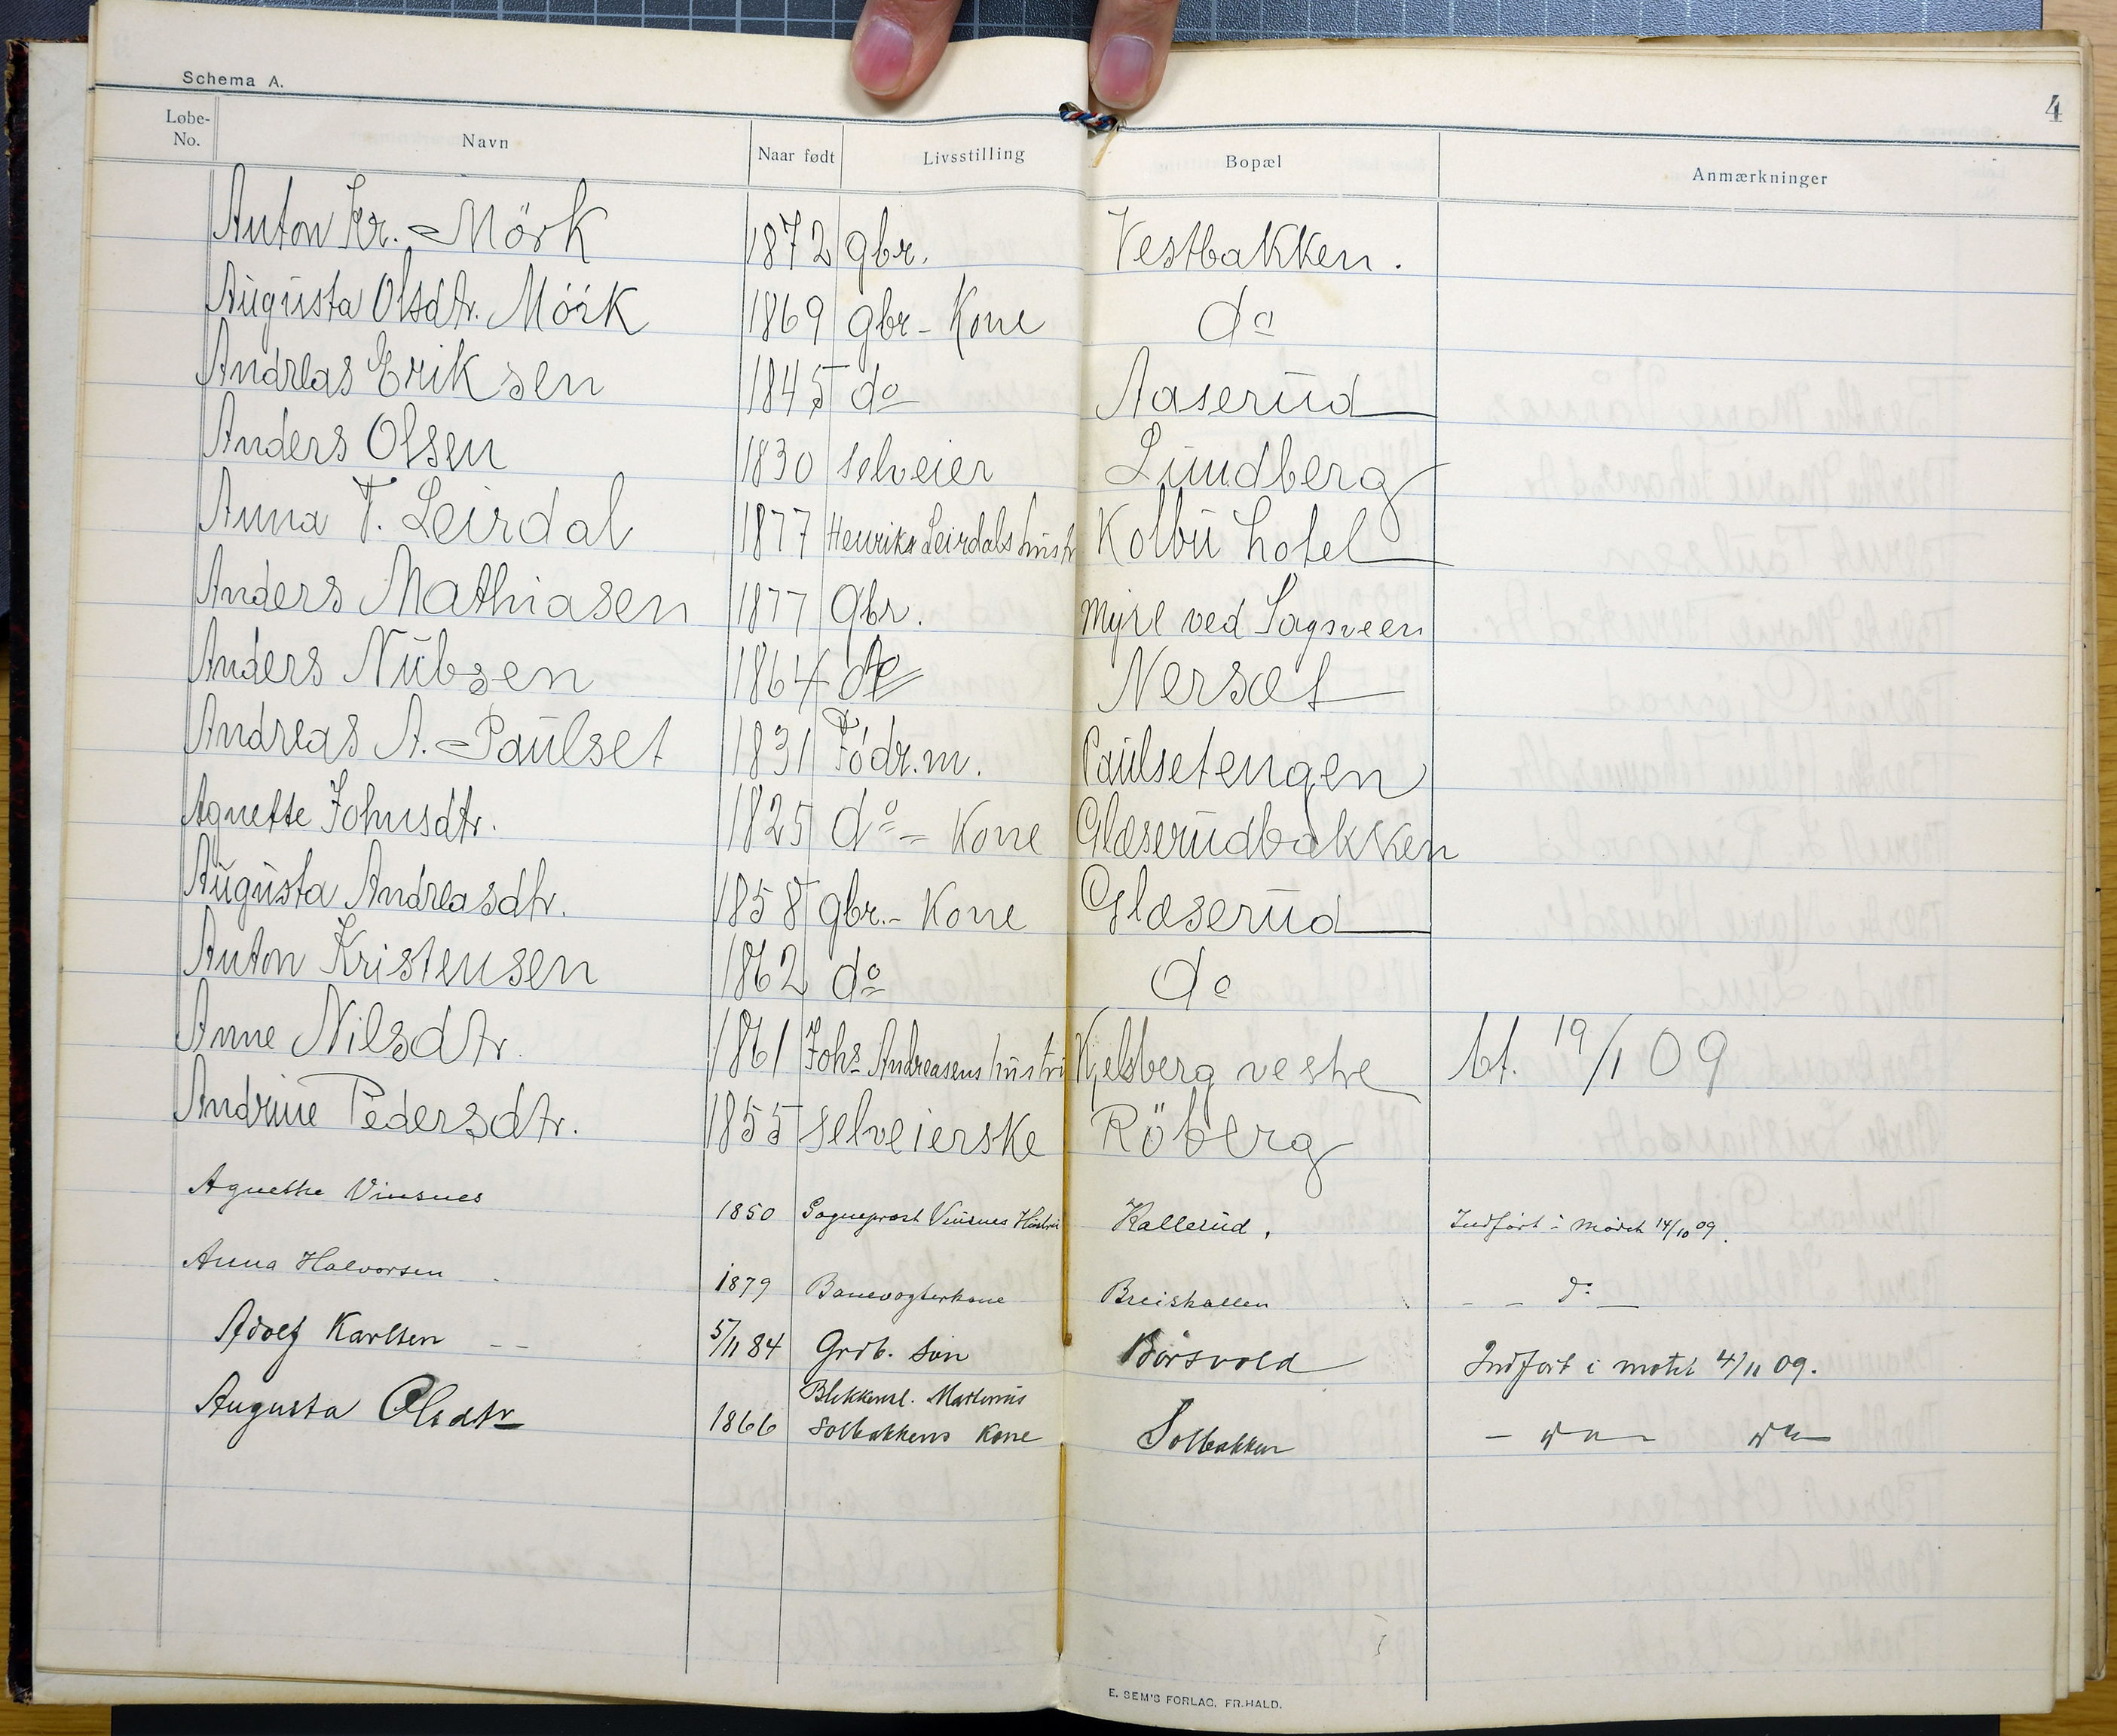 Schema A.
4
Løbe-No. Navn Naar født Livsstilling Bopæl Anmærkninger
Anton Kr. Mörk 1872 gbr. Vestbakken.
Augusta Olsdtr. Mörk 1869 gbr - Kone do
Andreas Eriksen 1845 do Aaserud
Anders Olsen 1830 selveier Lundberg
Anna T. Leirdal 1877 Henriks Leirdals hustr Kolbu hotel
Anders Mathiasen 1877 Gbr. Myre ved Sagsveen
Anders Nübsen 1864 do Nersæt
Andreas A. Paulset 1831 Födr.m. Paulsetengen
Agnette Johnsdtr. 1825 do - Kone Glæserudbakken
Augusta Andreasdtr. 1858 gbr. - Kone Glæserud
Anton Kristensen 1862 do do
Anne Nilsdtr. 1861 Johs Andreasens hustru Kjelsberg vestre bt. 19/1 09
Andrine Pedersdtr. 1855 selveierske Röberg
Agnethe Vinsnes 1850 Sogneprest Vinsnes Hustru Kallerud. Indført i mødet 14/10 09.
Anna Halvorsen 1879 Banevogterkone Breiskallen - - do -
Adolf Karlsen - - 5/11 84 Grdb. søn Börsvold Indført i møtet 4/11 09.
Augusta Olsdtr 1866 Blikkensl. Martinius
Solbakkens Kone Solbakken
E. SEM'S FORLAG, FR.HALD.